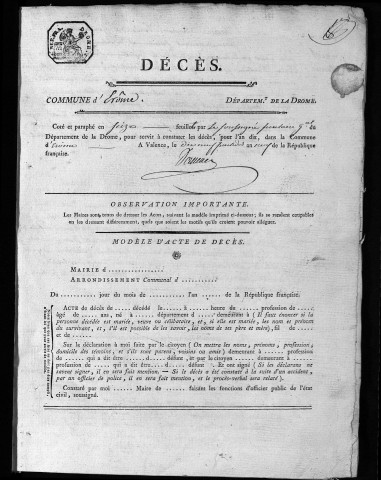 DÉCÈS.
COMMUNE d'Erôme. DÉPARTEM.t DE LA DROME.
Coté et paraphé en seize feuillets par
Département de la Drôme, pour servir à constater les décès, pour l'an dix, dans la Commune
d'Erôme A Valence, le an neuf de la République
française.
OBSERVATION IMPORTANTE.
Les Maires sont tenus de dresser les Actes, suivant le modèle imprimé ci-dessous; ils se rendent coupables
en les dressant différemment, quels que soient les motifs qu'ils croient pouvoir alléguer.
MODÈLE D'ACTE DE DÉCÈS.
MAIRIE d...................
ARRONDISSEMENT Communal d ...........
Du ........ jour du mois de ........ l'an ...... de la République française.
ACTE de décès de ..... décédé le ...... à ...... heure de ..... profession de .....
âgé de ..... ans, né à ..... département d ..... demeurant à ..... (Il faut énoncer si la
personne décédée est mariée, veuve ou célibataire, et, si elle est mariée, les nom et prénom
du survivant, et, s'il est possible de les savoir, les noms de ses père et mère), fil de .....
et de .....
Sur la déclaration à moi faite par le citoyen (On mettra les nom, prénoms, profession,
domicile des témoins, et s'ils sont parens, voisins ou amis) demeurant à ..... profession
de ..... qui a dit être ..... du défunt, et par le citoyen ..... demeurant à .....
profession de ..... qui a dit être ..... du défunt . Et ont signé (Si les déclarans ne
savent signer, il en sera fait mention. — Si le décès a été constaté à la suite d'un accident,
par un officier de police, il en sera fait mention, et le procès-verbal sera relaté).
Constaté par moi ..... Maire de ..... faisant les fonctions d'officier public de l'état
civil, soussigné.